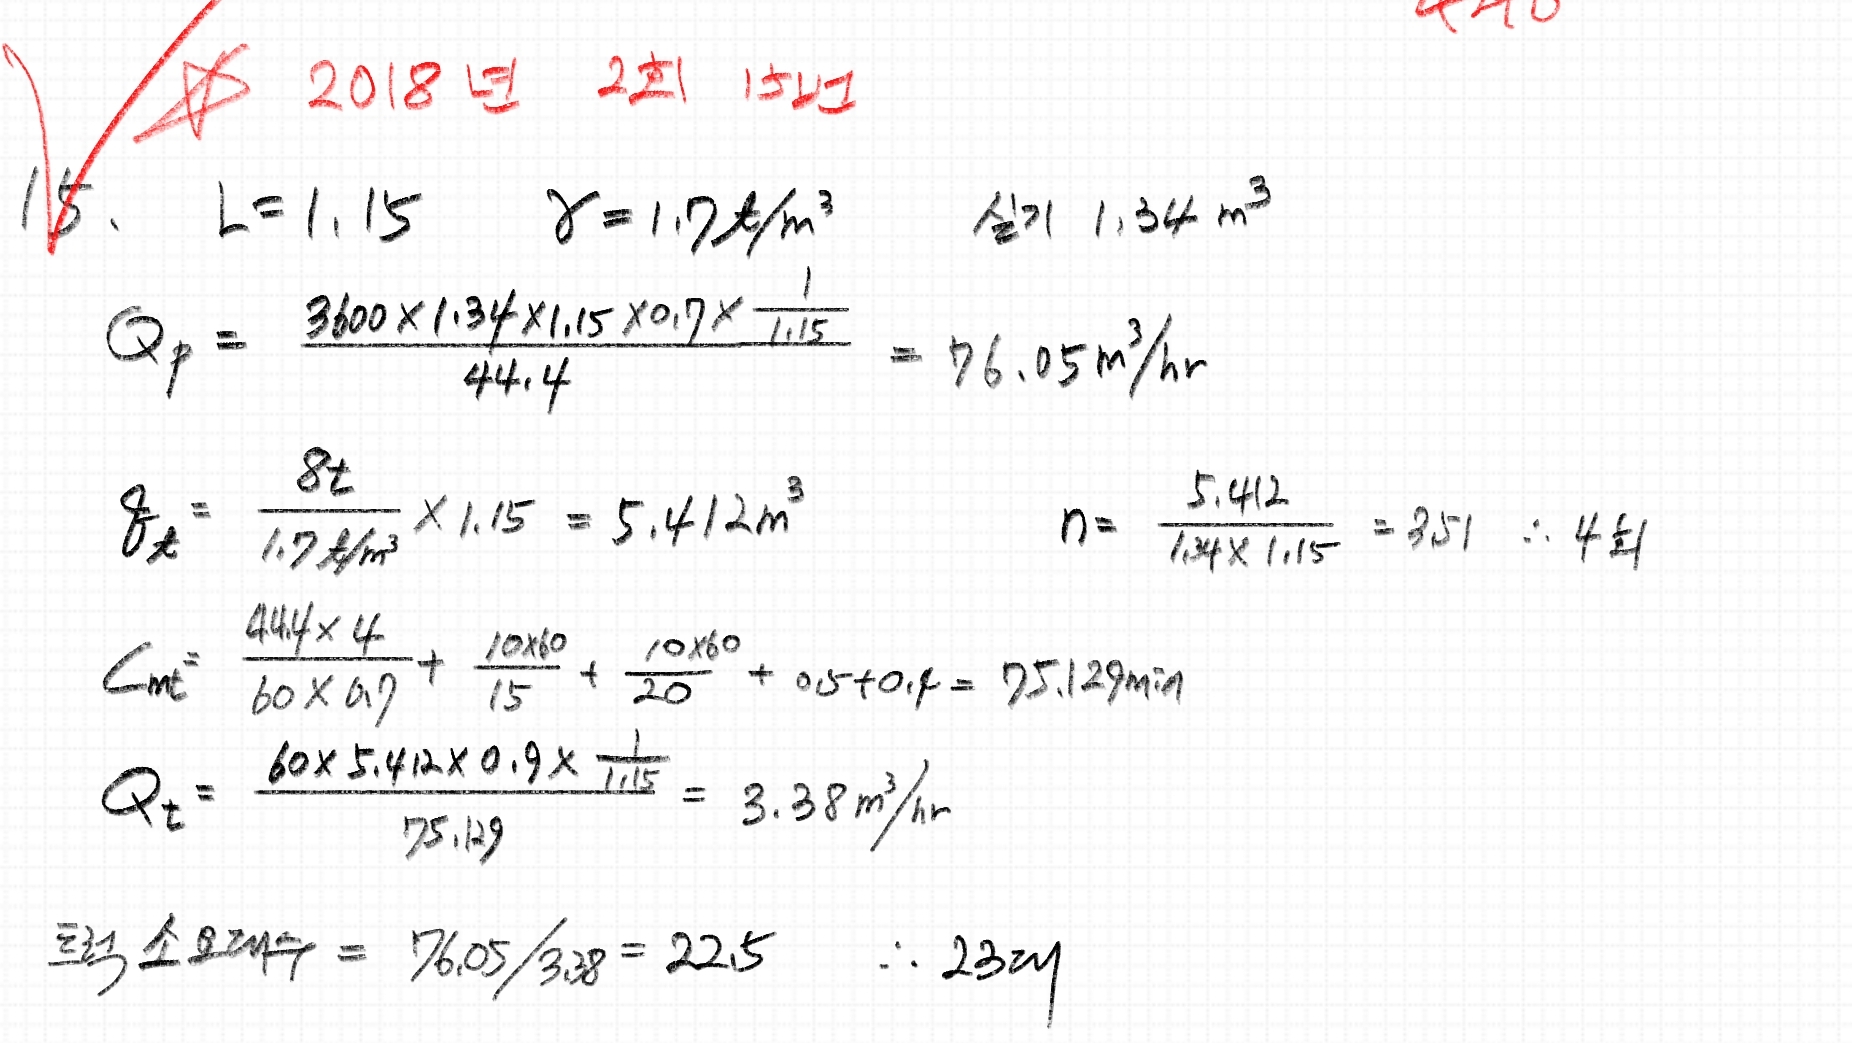 2018년 2회 15번
15. L=1.15 γ=1.7t/m³ 싣기 1.34m³
Qp = (3600×1.34×1.15×0.7×1/1.15)/44.4 = 76.05m³/hr
qt = 8t/(1.7t/m³) ×1.15 = 5.412m³ n = 5.412/(1.34×1.15) = 3.51 ∴ 4회
Cmt = (44.4×4)/(60×0.7) + (10×60)/15 + (10×60)/20 + 0.5+0.4 = 75.129min
Qt = (60×5.412×0.9×1/1.15)/75.129 = 3.38m³/hr
트럭 소요대수 = 76.05/3.38 = 22.5 ∴ 23대